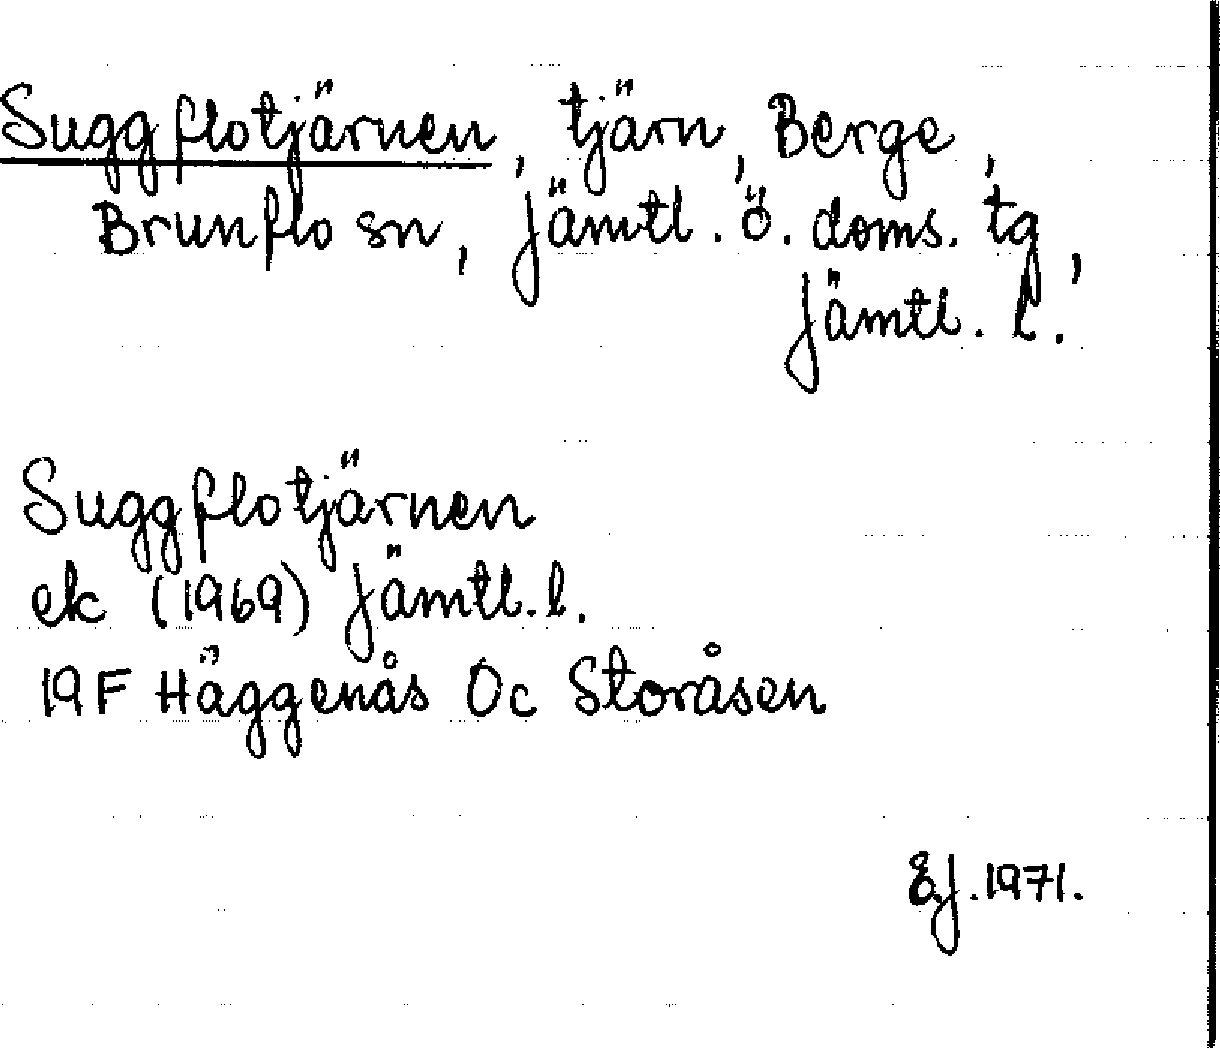 Suggflotjärnen, tjärn, Berge,
Brunflo sn, Jämtl. ö. doms. tg,
Jämtl. l.
Suggflotjärnen
ek (1969) Jämtl. l.
19F Häggenås Oc Storåsen
E.J. 1971.